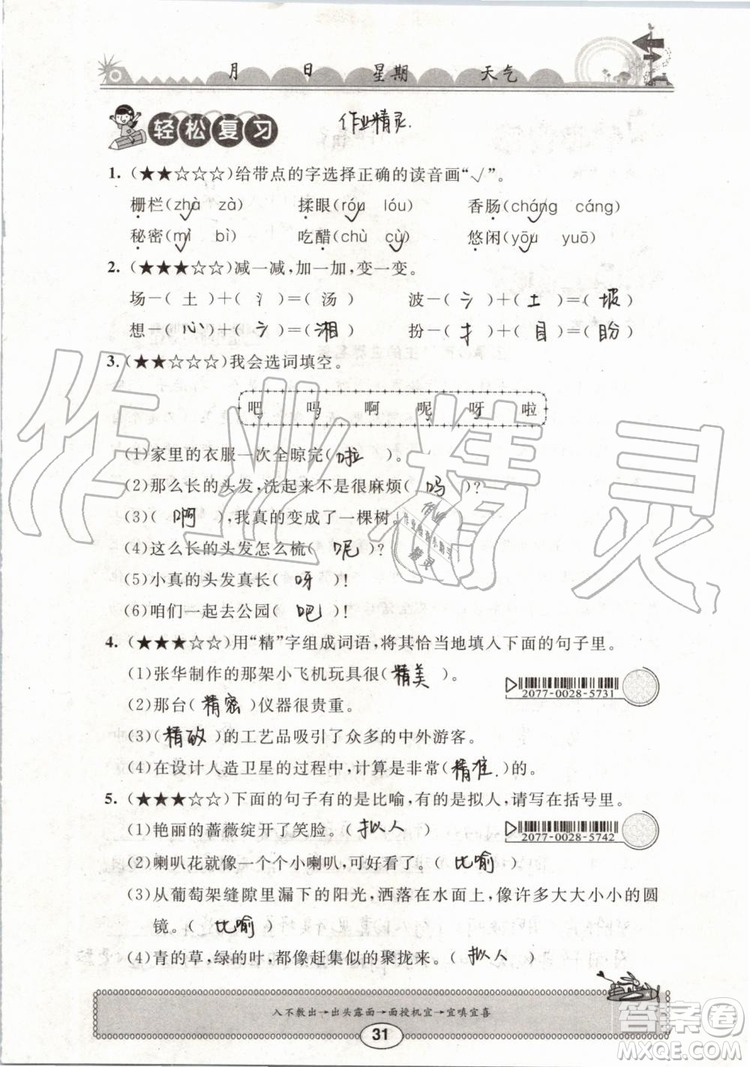 月 日 星期 天气
轻松复习
作业精灵
1.(★★☆☆☆)给带点的字选择正确的读音画“√”。
栅栏(zhà√ zà) 揉眼(róu√ lóu) 香肠(cháng√ cáng)
秘密(mì√ bì) 吃醋(chù cù√) 悠闲(yōu√ yuō)
2.(★★★☆☆)减一减,加一加,变一变。
场-(土)+(氵)=(汤) 波-(氵)+(土)=(坡)
想-(心)+(氵)=(湘) 扮-(扌)+(目)=(盼)
3.(★★☆☆☆)我会选词填空。
吧 吗 啊 呢 呀 啦
(1)家里的衣服一次全晾完(啦)。
(2)那么长的头发,洗起来不是很麻烦(吗)?
(3)(啊),我真的变成了一棵树。
(4)这么长的头发怎么梳(呢)?
(5)小真的头发真长(呀)!
(6)咱们一起去公园(吧)!
4.(★★★☆☆)用“精”字组成词语,将其恰当地填入下面的句子里。
(1)张华制作的那架小飞机玩具很(精美)。
2077-0028-5731
(2)那台(精密)仪器很贵重。
(3)(精致)的工艺品吸引了众多的中外游客。
(4)在设计人造卫星的过程中,计算是非常(精准)的。
5.(★★★☆☆)下面的句子有的是比喻,有的是拟人,请写在括号里。
(1)艳丽的蔷薇绽开了笑脸。(拟人)
2077-0028-5742
(2)喇叭花就像一个个小喇叭,可好看了。(比喻)
(3)从葡萄架缝隙里漏下的阳光,洒落在水面上,像许多大大小小的圆
镜。(比喻)
(4)青的草,绿的叶,都像赶集似的聚拢来。(拟人)
入不敷出→出头露面→面授机宜→宜嗔宜喜
31
作业精灵
答案圈
MXQE.COM